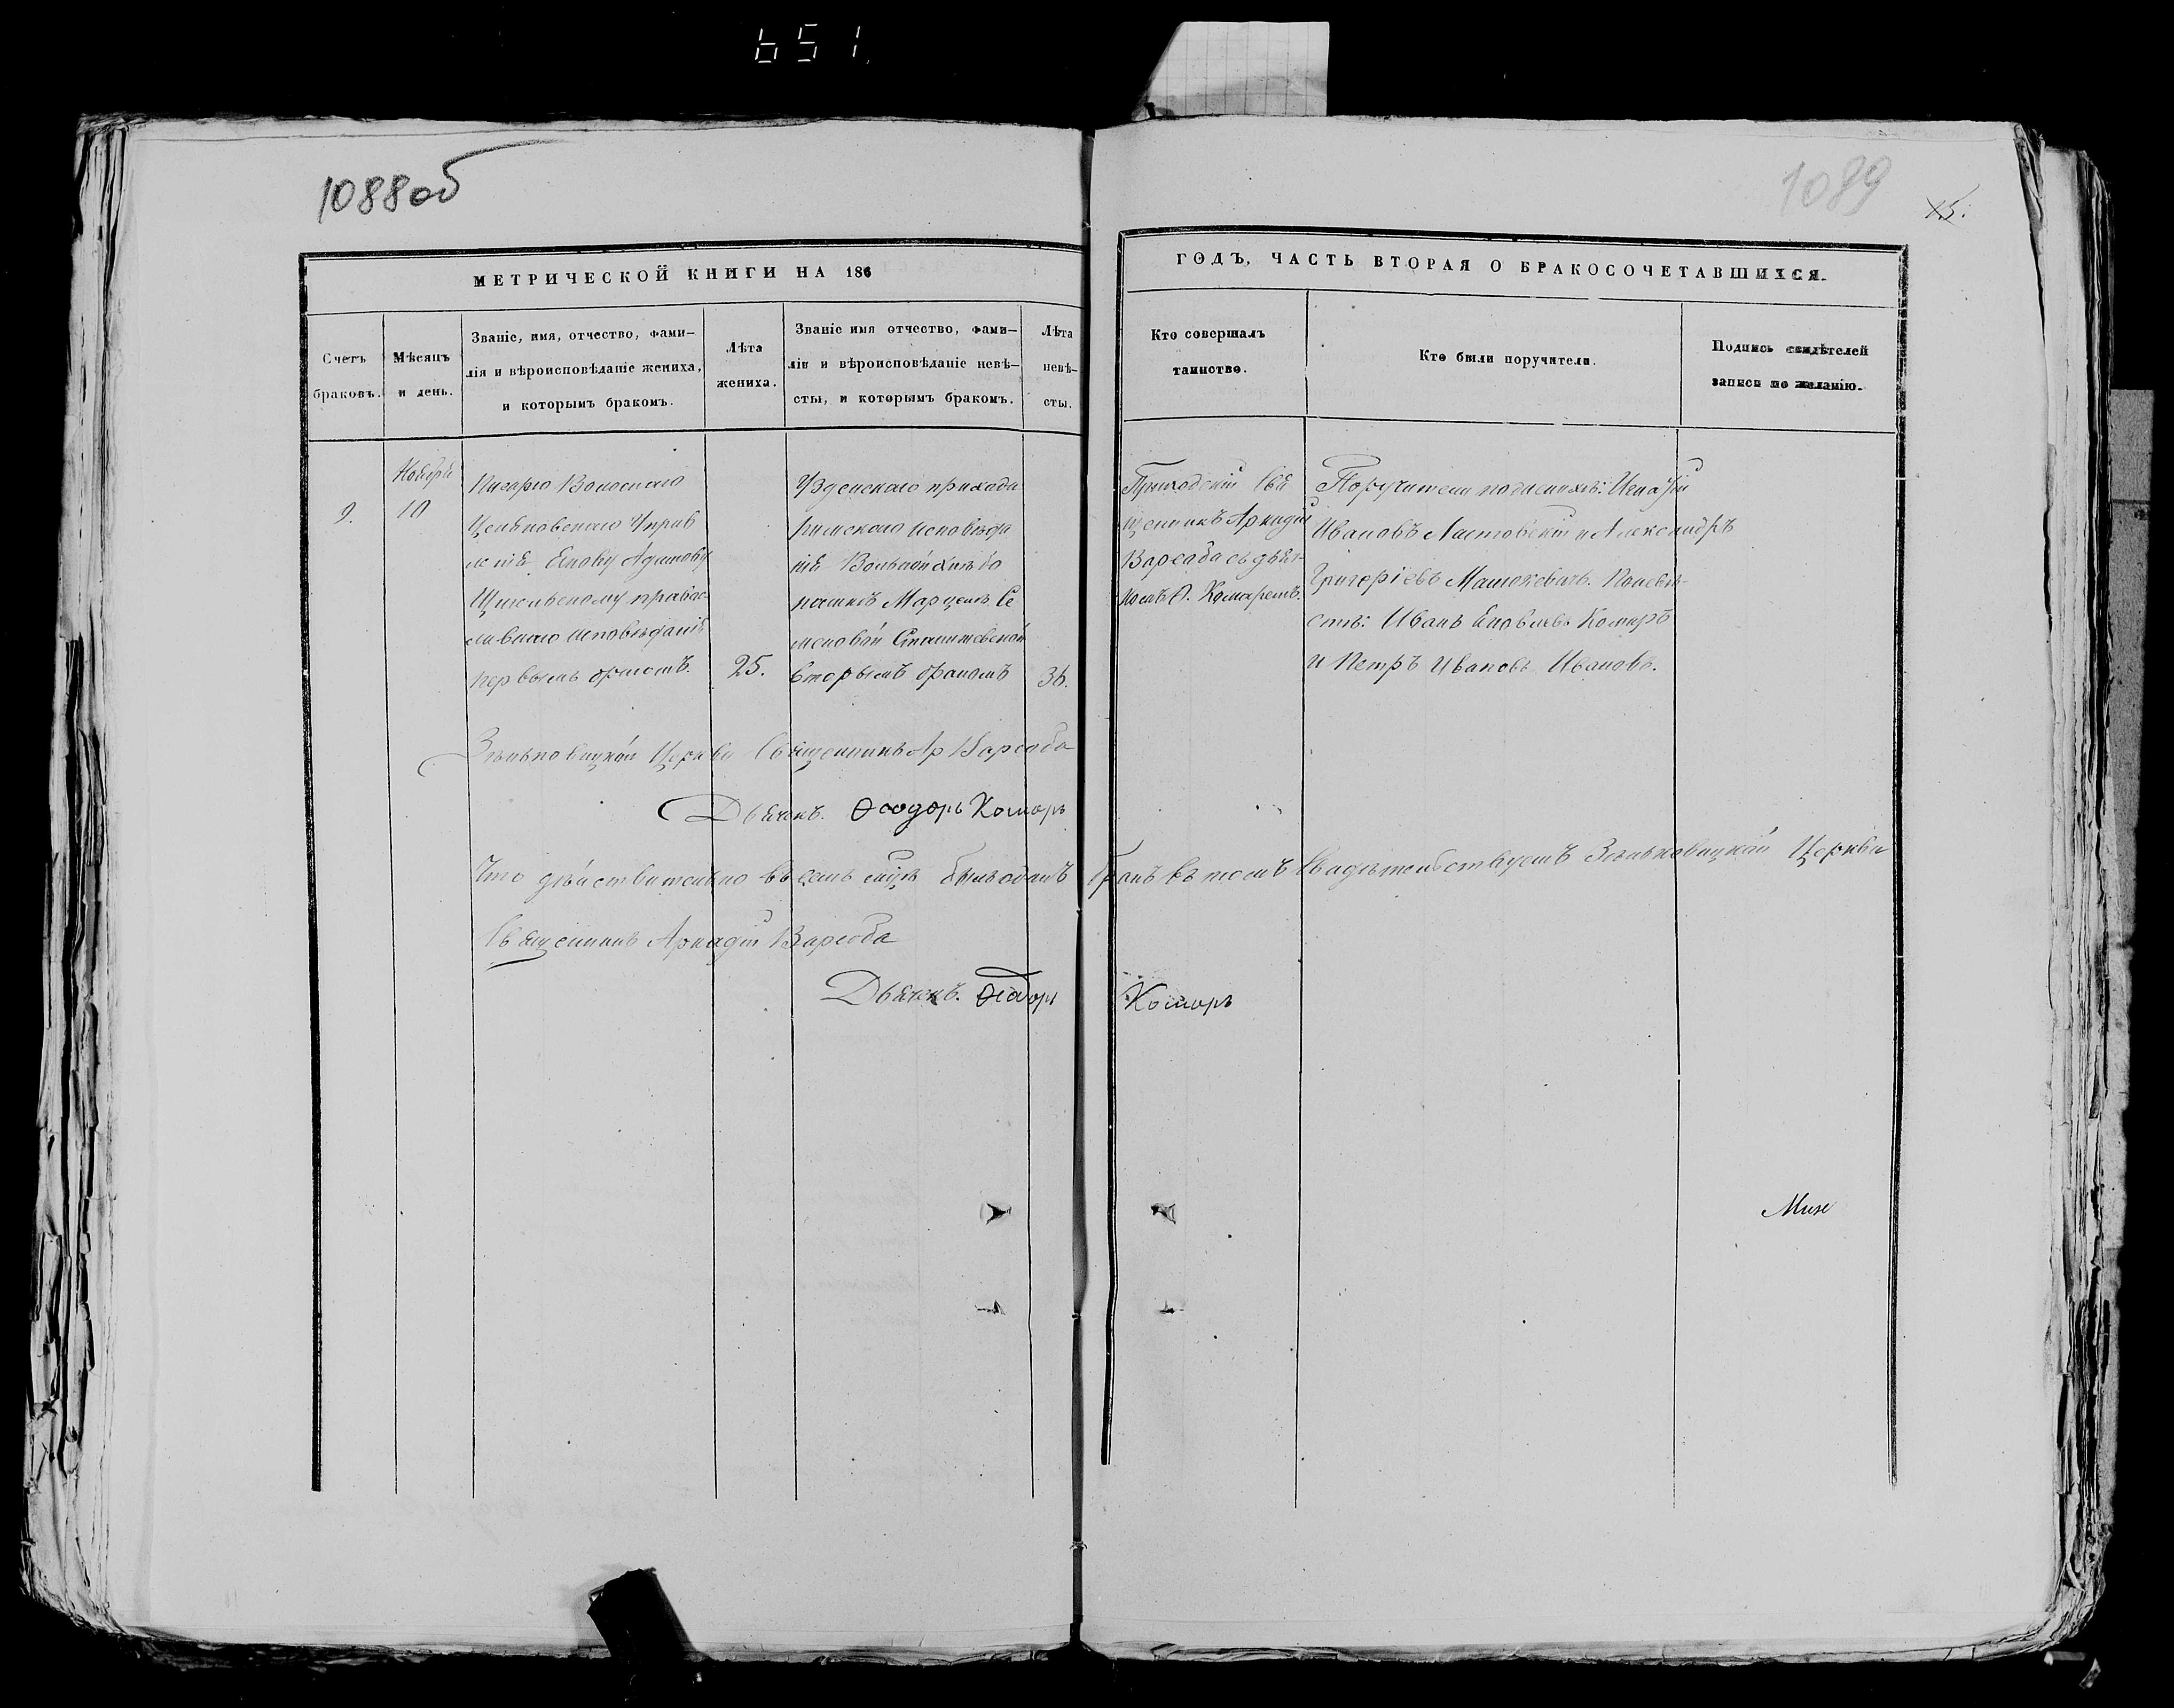 651
1088об
1089
15.
МЕТРИЧЕСКОЙ КНИГИ НА 186
ГОДЪ, ЧАСТЬ ВТОРАЯ О БРАКОСОЧЕТАВШИХСЯ.
Счетъ
браковъ.
Мѣсяцъ
и день.
Званіе, имя, отчество, фами-
лія и вѣроисповѣданіе жениха,
и которымъ бракомъ.
Лѣта
жениха.
Званіе имя отчество, фами-
лія и вѣроисповѣданіе невѣ-
сты, и которымъ бракомъ.
Лѣта
невѣ-
сты.
Кто совершалъ
таинство.
Кто были поручители.
Подпись свидѣтелей
записи по желанію.
9.
Ноября
10
Писарю Волоснаго
Управ
ленія Якову Адамову
правос-
лавнаго исповѣданія
первымъ бракомъ.
25.
Узденскаго прихода
римскаго исповѣда
нія Вольной
Се
меновой Станишевской
вторымъ бракомъ
36.
Приходскій Свя
щенникъ Аркадій
Варсоба съ дьяч-
комъ Ѳ. Комаремъ.
Поручители по женихѣ: Игнатій
Ивановъ Ластовскій и Александръ
Григоріевъ Машкевичъ. По невѣ-
стѣ: Иванъ Яковлевъ Комаръ
и Петръ Ивановъ Ивановъ.
Церкви Священникъ Ар Варсоба
Дьячекъ. Ѳеодоръ Комаръ
Что дѣйствительно въ семъ мцѣ былъ одинъ бракъ въ томъ свидѣтельствуетъ Церкви
Священникъ Аркадій Варсоба
Дьячекъ. Ѳеодоръ Комаръ